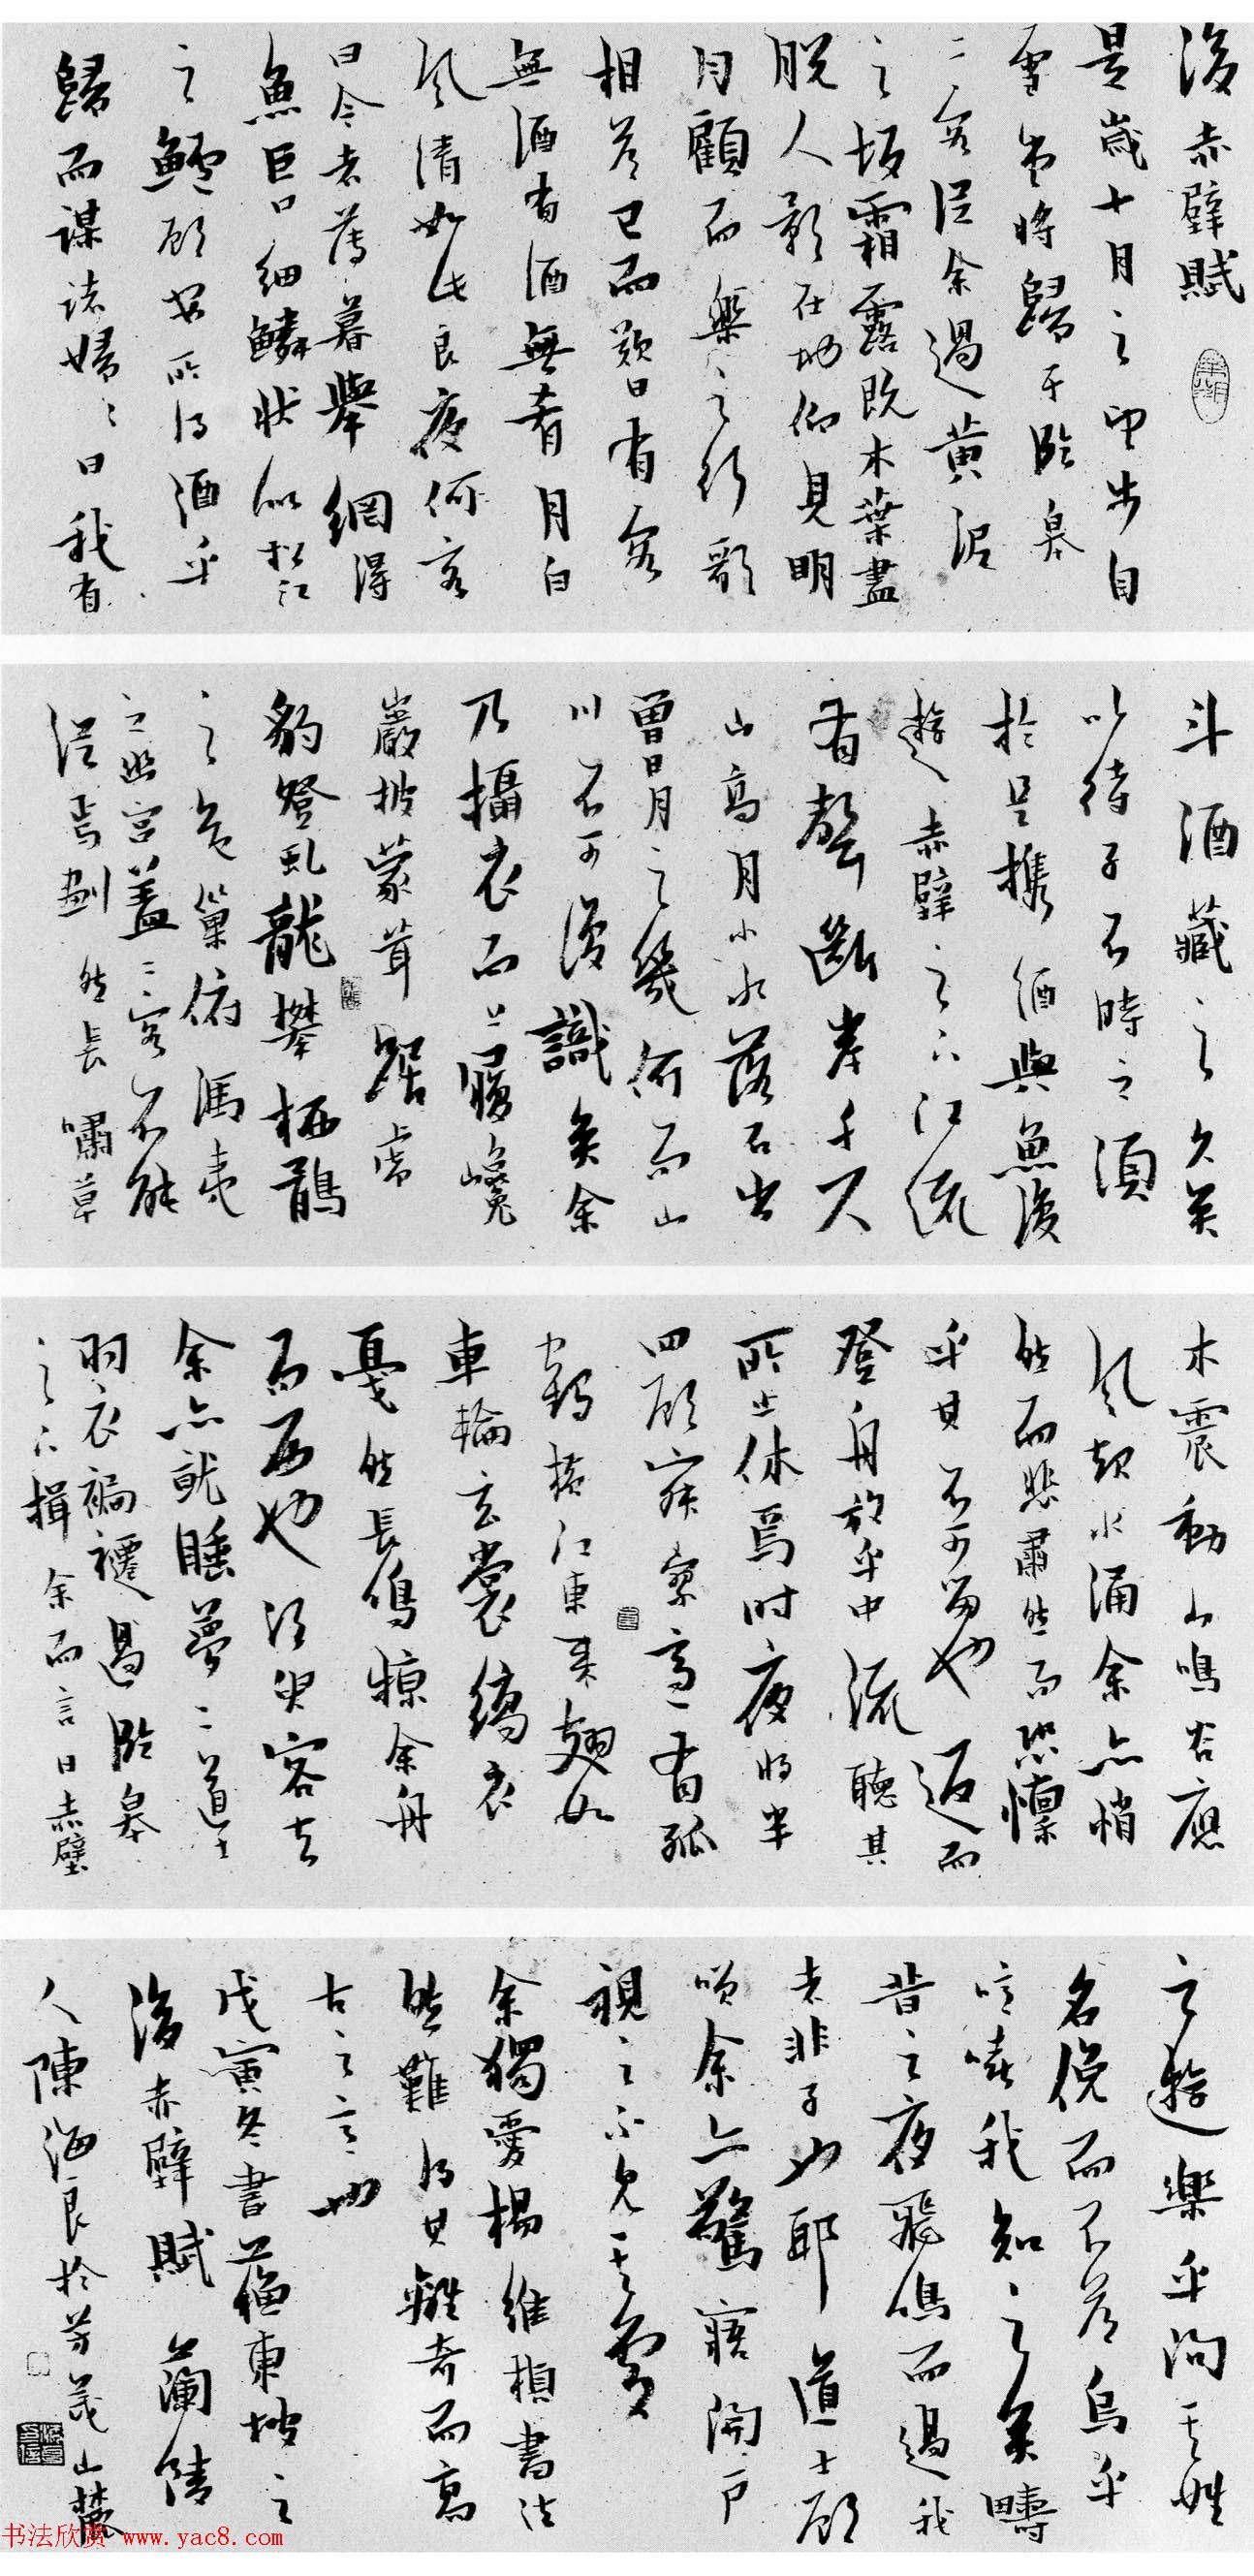 後赤壁賦
是歲十月之望步自
雪堂將歸于臨皋
二客從余過黃泥
之坂霜露既木葉盡
脫人影在地仰見明
月顧而樂之行歌
相答已而歎曰有客
無酒有酒無肴月白
風清如此良夜何客
曰今者薄暮舉網得
魚巨口細鱗狀似松江
之鱸顧安所得酒乎
歸而謀諸婦婦曰我有
斗酒藏之久矣
以待子不時之須
於是攜酒與魚復
遊赤壁之下江流
有聲斷岸千尺
山高月小水落石出
曾日月之幾何而山
川不可復識矣余
乃攝衣而上履巉
巖披蒙茸踞虎
豹登虬龍攀栖鶻
之危巢俯馮夷
之幽宮蓋二客不能
從焉劃然長嘯草
木震動山鳴谷應
風起水涌余亦悄
然而悲肅然而恐懍
乎其不可留也返而
登舟放乎中流聽其
所止休焉时夜將半
四顧寂寥適有孤
鶴橫江東來翅如
車輪玄裳縞衣
戛然長鳴掠余舟
而西也須臾客去
余亦就睡夢二道士
羽衣褊褼過臨皋
之下揖余而言曰赤壁
之遊樂乎問其姓
名俛而不答烏乎
噫嘻我知之矣疇
昔之夜飛鳴而過我
者非子也耶道士顧
唉余亦驚寤開戶
視之不見其處
余獨愛楊維楨書法
然難得其離奇而高
古之意也
戊寅冬書蘇東坡之
後赤壁賦蘭陵
人陳海良於芳茂山麓
书法欣赏 www.yac8.com